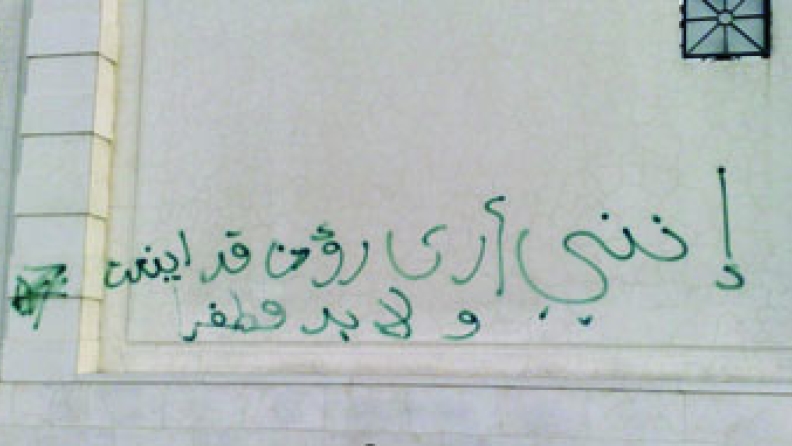 إنني أرى رؤس قد اينعت
و لا بد قطفها